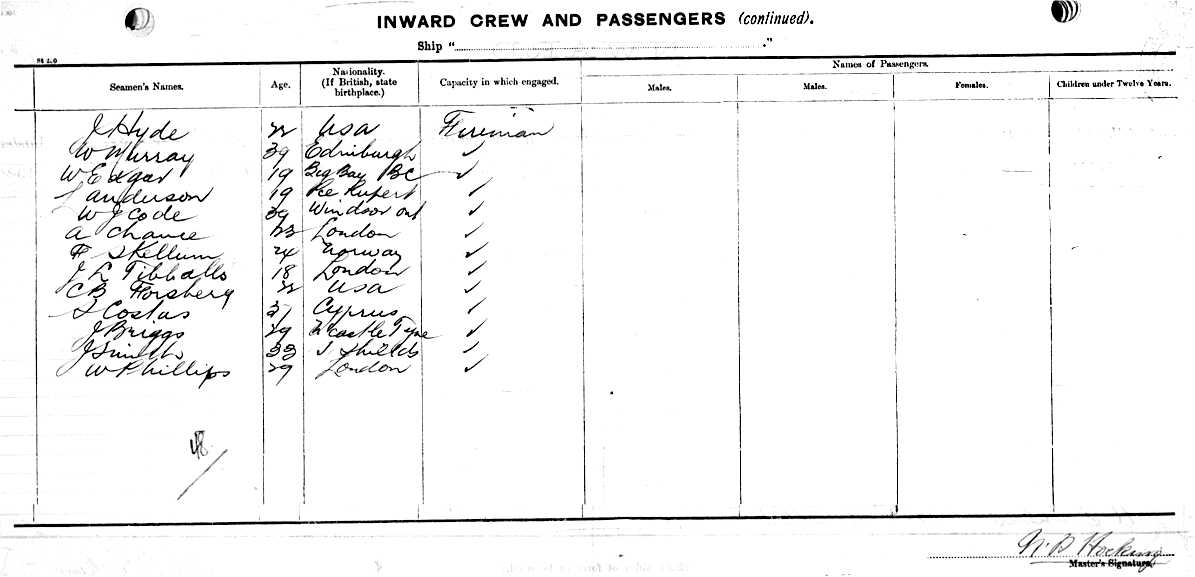 INWARD CREW AND PASSENGERS (continued).
Ship " ."
Names of Passengers.
Seamen's Names. Age. Nationality. (If British, state birthplace.) Capacity in which engaged. Males. Males. Females. Children under Twelve Years.
J Hyde 22 USA Fireman
W Murray 39 Edinburgh ✓
W Edgar 19 Big Bay BC ✓
anderson 19 Pce Rupert ✓
W J Code 39 Windsor ont ✓
A Chance 23 London ✓
F Skellum 24 Norway ✓
J L Tibballs 18 London ✓
CB Forsberg 22 USA ✓
Costas 37 Cyprus ✓
J Briggs 29 N castle Tyne ✓
J Smith 33 S Shields ✓
W Phillips 29 London ✓
48
N. B Hocking
Master's Signature.